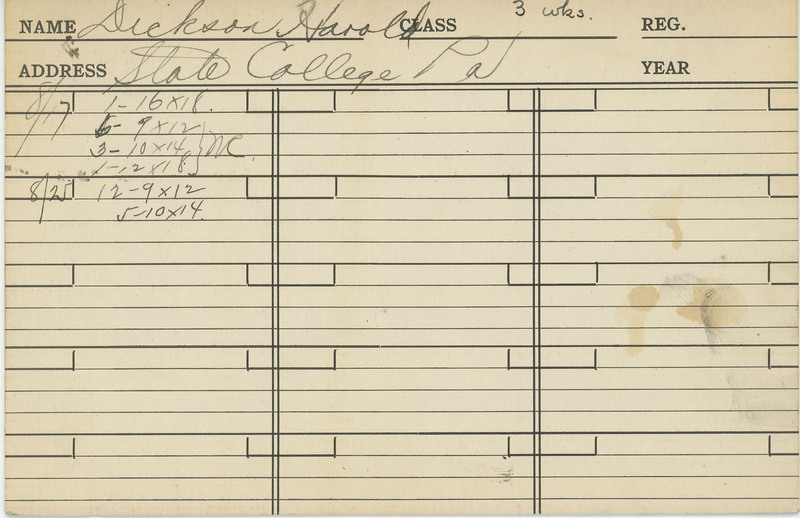 NAME Dickson Harold CLASS 3 wks. REG.
ADDRESS State College Pa YEAR
8/17 1-16x18.
6-9x12
3-10x14 } NC.
1-12x18
8/25 12-9x12
5-10x14.